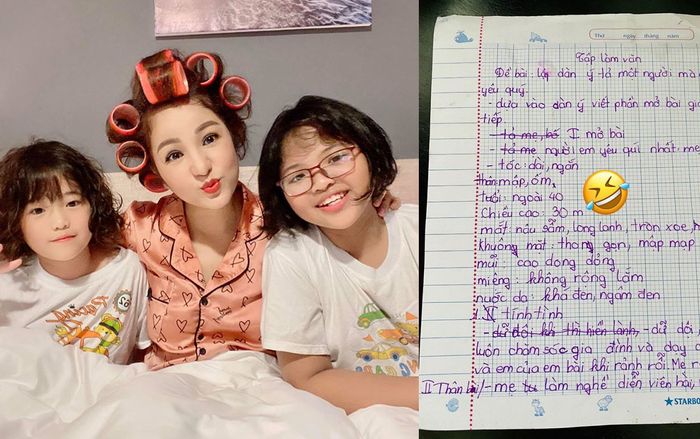 Thứ ngày tháng năm
Tập làm văn
Đề bài: lập dàn ý tả một người mà
yêu quý.
- dựa vào dàn ý viết phần mở bài gi
tiếp.
- tả mẹ, bố I mở bài
- tả mẹ người em yêu quí nhất mẹ
- tóc: dài, ngắn
thân: mập, ốm,
tuổi: ngoài 40
chiều cao: 30 m
mắt: nâu sẫm, long lanh, tròn xoe,
khuông mặt: thon gọn, mập mạp
mũi: cao dong dỏng
miệng: không rộng lắm
nước da: khá đen, ngăm đen
II tính tình
- dữ đôi khi thì hiền lành, - dữ dằ
luôn chăm sóc gia đình và dạy
và em của em bài khi rảnh rỗi. Mẹ r
II Thân bài/ - mẹ làm nghề diễn viên hài,
STARBO